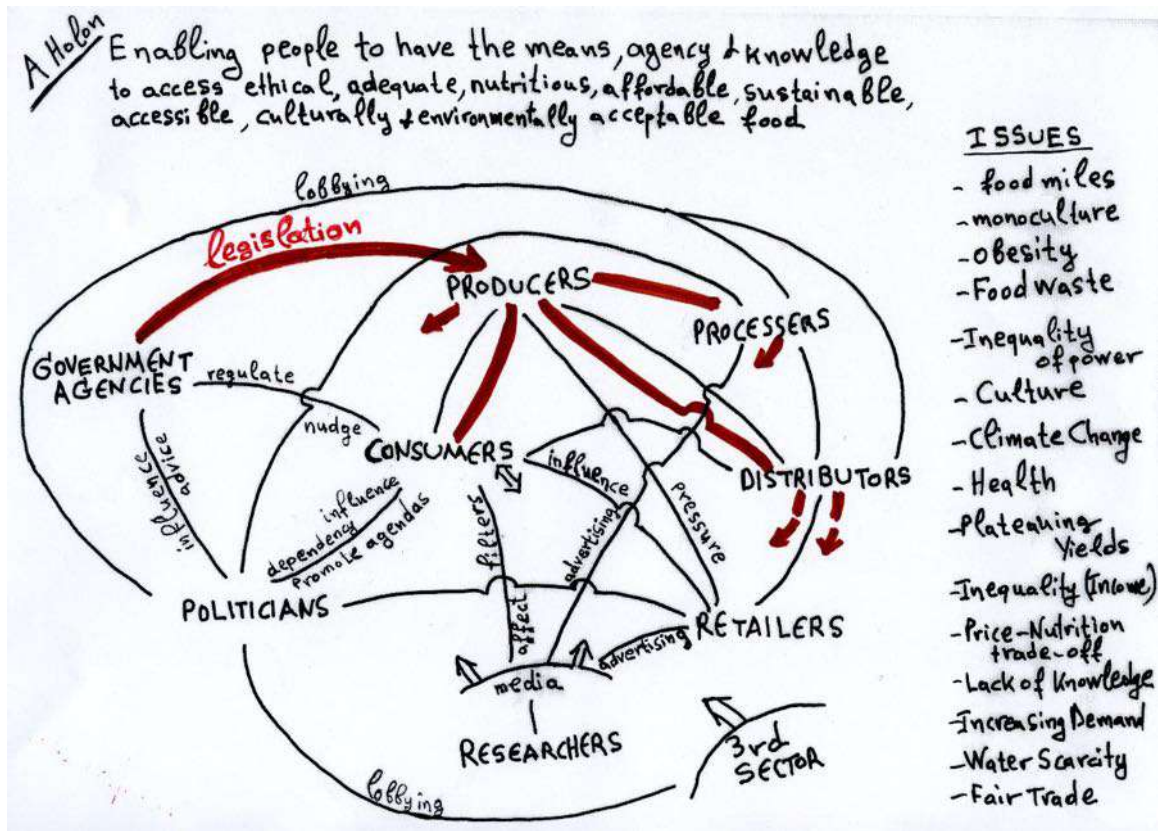 A Holon
Enabling people to have the means, agency & knowledge
to access ethical, adequate, nutritious, affordable, sustainable,
accessible, culturally & environmentally acceptable food
lobbying
legislation
PRODUCERS
PROCESSERS
GOVERNMENT
AGENCIES
regulate
nudge
CONSUMERS
influence
DISTRIBUTORS
influence
advice
influence
dependency
promote agendas
filters
affect
advertising
pressure
POLITICIANS
RETAILERS
advertising
media
RESEARCHERS
3rd
SECTOR
lobbying
ISSUES
- food miles
- monoculture
- Obesity
- Food Waste
- Inequality
of power
- Culture
- Climate Change
- Health
- Plateauing
Yields
- Inequality (Income)
- Price-Nutrition
trade-off
- Lack of Knowledge
- Increasing Demand
- Water Scarcity
- Fair Trade